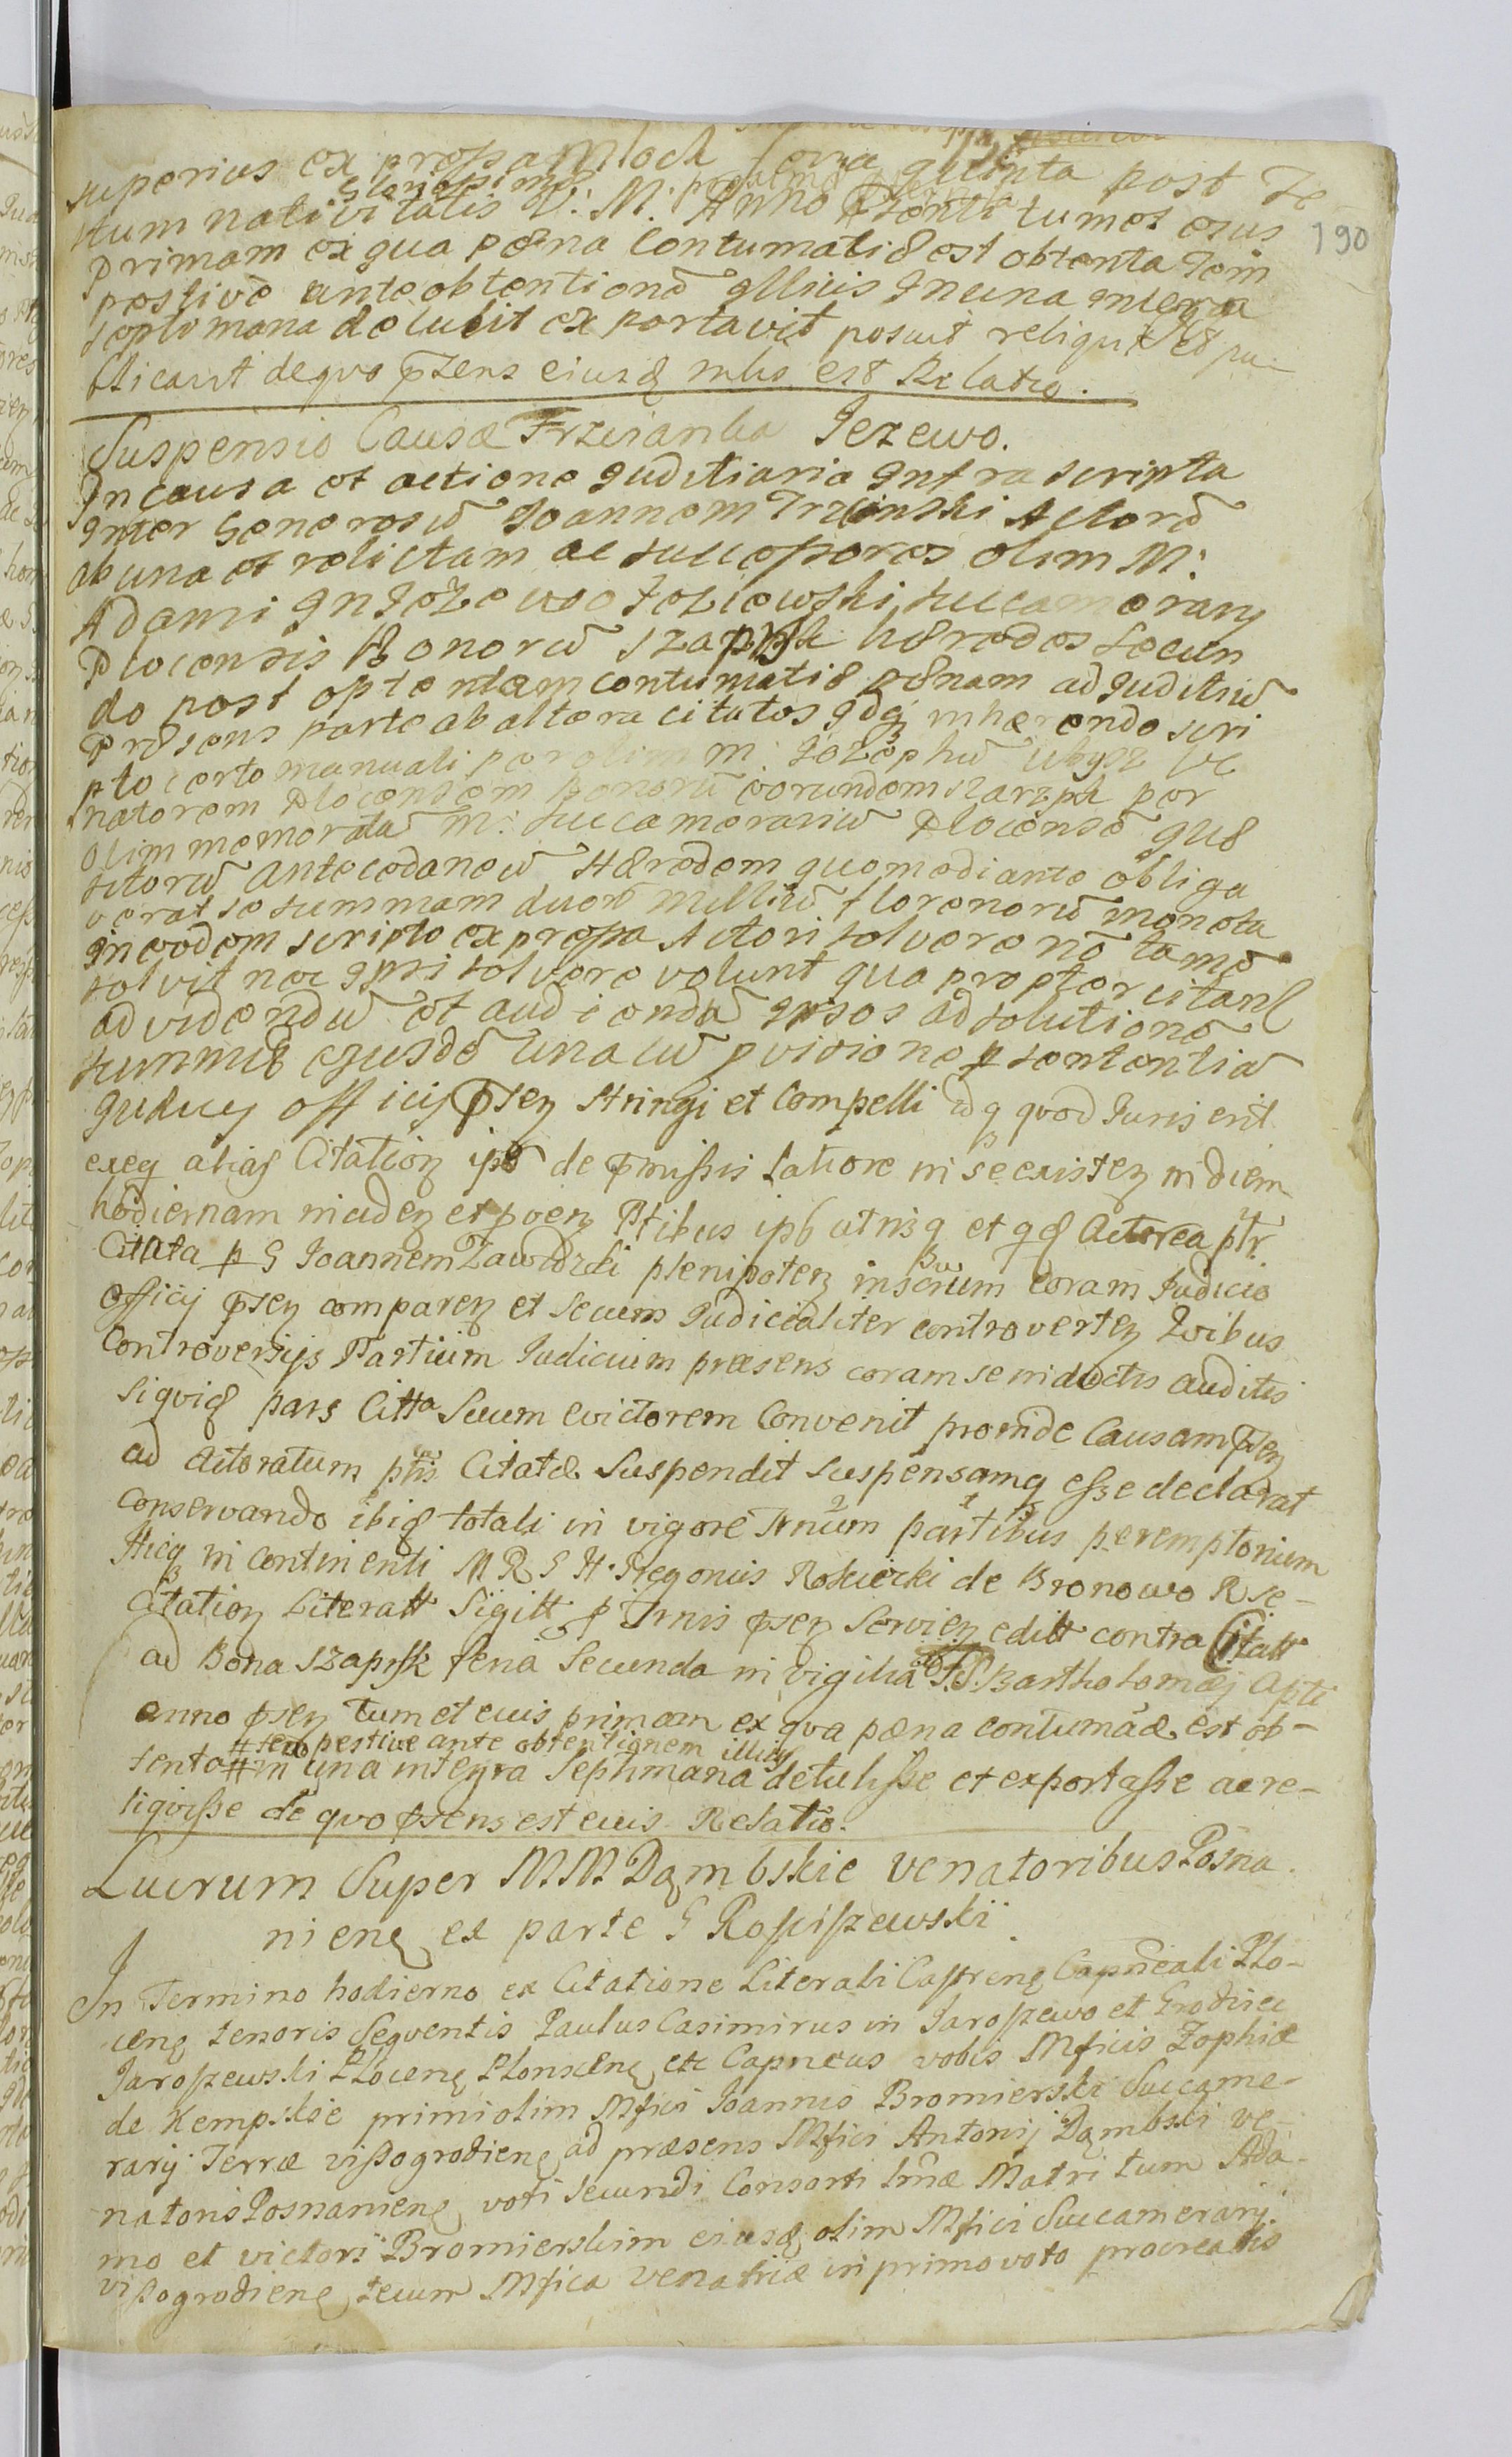 superius ex proßa Mlock feria quinta post Fe
stum nativitatis Gloriosissimæ V: M: Anno Prænti tum et ejus
190
primam ex qua pæna Contumatiæ est obtenta Tem
pestivè ante obtentionē illius In una integra
septimana detulit exportavit posuit reliquit et pu-
blicavit de quo p̄sens eiusq mlis est Relatio.
Suspensio Causæ Trzcianka Jezewo.
In causa et actione Juditiaria Infra scripta
Inter Generosū Joannem Trzcinski Actorē
ab una et relictam ac succeßores olim M:
Adami In Jeżewo Jeziewski succamerary
Plocensis Bonorū Szapsk hæredes secun
do post optentam contumatiæ pænam ad Juditiū
Præsens parte ab altera citatos Idq inhærendo scri
pto certo manuali per olim M: Jozephū Ve
natorem Plocensem Bonorū eorundem per
olim memorata M: succamerariū Plocensē que
sitorū antecedaneū Hæredem quo mediante obliga
verat se summam duorū Milliū florenorū moneta
in eodem scripto expreßa Actori solvere nō tamē
solvit nec Ipsi solvere volunt qua propter citant
ad videndū et audiendū Ipsos ad solutionē
summæ ejusdē una cū pvisione p sententiā
Judicy officij p̄sen stringi et Compelli idq quod Juris erit
exeq alias Citation ipō de p̄mißis latiore in se existen in diem
hodiernam inciden et pven Ptibus ipb utrisq et qd Actorea ptr
Citata p G Joannem Zawidzki plenipoten inscrium coram Judicio
Officij p̄sen comparen et secum Judicialiter controverten Qvibus
Controversijs Partium Judicium præsens coram se inductis auditis
siqvid pars Citta Suum evictorem Convenit proinde Causam p̄sen
ad Actoratum ptis Citatæ Suspendit suspensamq eße declarat
Conservando ibid totali in vigore Trnum partibus peremptorium
Hicq in continenti M R G H Regonius Rokicki de Bronowo R Se-
Citation Literatt Sigitt p Trnis p̄sen Servien editt contra Citatt
ad Bona Szapsk feria Secunda in vigilia S. Bartholomæj Apti
anno p̄sen tum et euis primam ex qva pæna contumaciæ est ob-
# tempestive ante obtentionem illius
tenta # in una integra Septimana detulisse et exportaße ac re-
liqviße de qvo p̄sens est euis Relatio.
Lucrum Super MM Dąmbskie venatoribus Posna
niens ex parte G Rosciszewskii
In Termino hodierno ex Citatione Literali Castrens Capneali Plo-
cens tenoris Seqventis Paulus Casimirus in Jaroszewo et Grodziec
Jaroszewski Plocens Plonscens etc Capneus vobis Mficis Zophiæ
de Kempskie primi olim Mfici Joannis Bromierski Succame-
rarij Terræ vißogrodiens ad præsens Mfici Antonij Dąmbski ve-
natoris Posnaniens voti Secundi Consorti tm̄æ Matri tum Ada-
mo et victori Bromierskim eiusq olim Mfici Succamerarij
vißogrodiens tecum Mfica venatriæ in primo voto procreatis